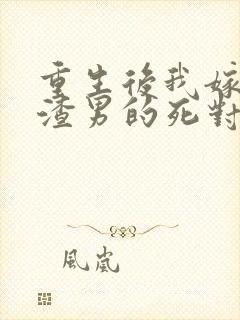 重生後我嫁
渣男的死對
風嵐